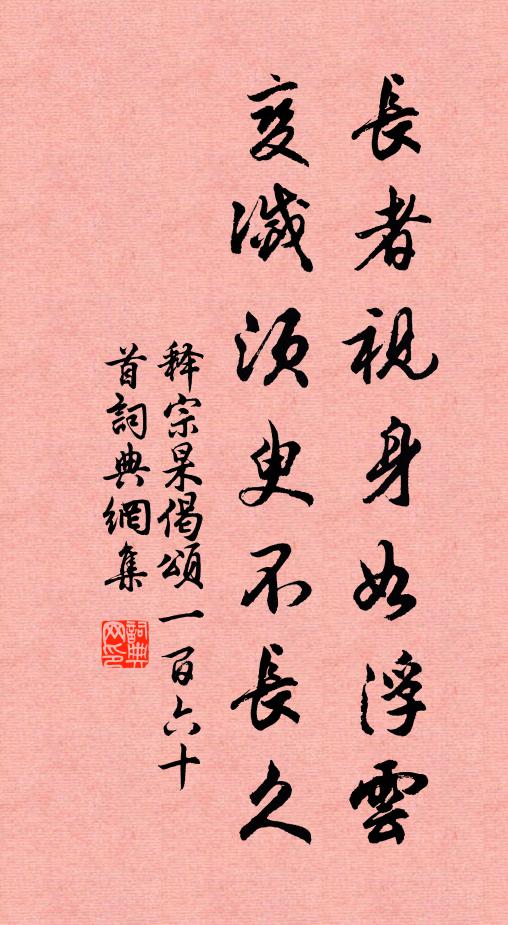 長者視身如浮雲
變滅須臾不長久
釋宗杲偈頌一百六十
首詞典網集
詞典網印